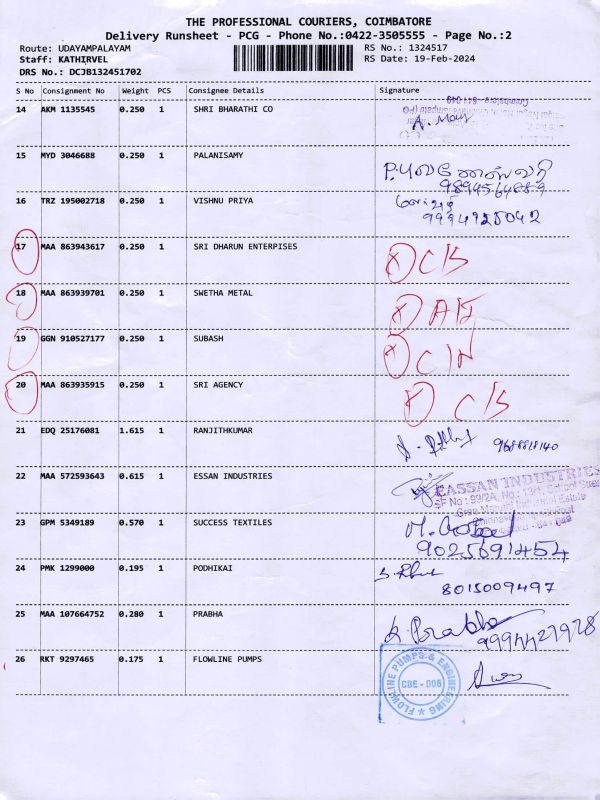 THE PROFESSIONAL COURIERS, COIMBATORE
Delivery Runsheet - PCG - Phone No.:0422-3505555 - Page No.:2
Route: UDAYAMPALAYAM
RS No.: 1324517
Staff: KATHIRVEL
RS Date: 19-Feb-2024
DRS No.: DCJB132451702
S No Consignment No Weight PCS Consignee Details Signature
14 AKM 1135545 0.250 1 SHRI BHARATHI CO
15 MYD 3046688 0.250 1 PALANISAMY
9894564889
16 TRZ 195002718 0.250 1 VISHNU PRIYA
9994925042
17 MAA 863943617 0.250 1 SRI DHARUN ENTERPISES
18 MAA 863939701 0.250 1 SWETHA METAL
19 GGN 910527177 0.250 1 SUBASH
20 MAA 863935915 0.250 1 SRI AGENCY
21 EDQ 25176081 1.615 1 RANJITHKUMAR
9688818140
22 MAA 572593643 0.615 1 ESSAN INDUSTRIES
EASSAN INDUSTRIES
23 GPM 5349189 0.570 1 SUCCESS TEXTILES
9025691454
24 PMK 1299000 0.195 1 PODHIKAI
8015009497
25 MAA 107664752 0.280 1 PRABHA
K. Prabha
9994427928
26 RKT 9297465 0.175 1 FLOWLINE PUMPS
FLOWLINE PUMPS & ENGINEERING
CBE - 006